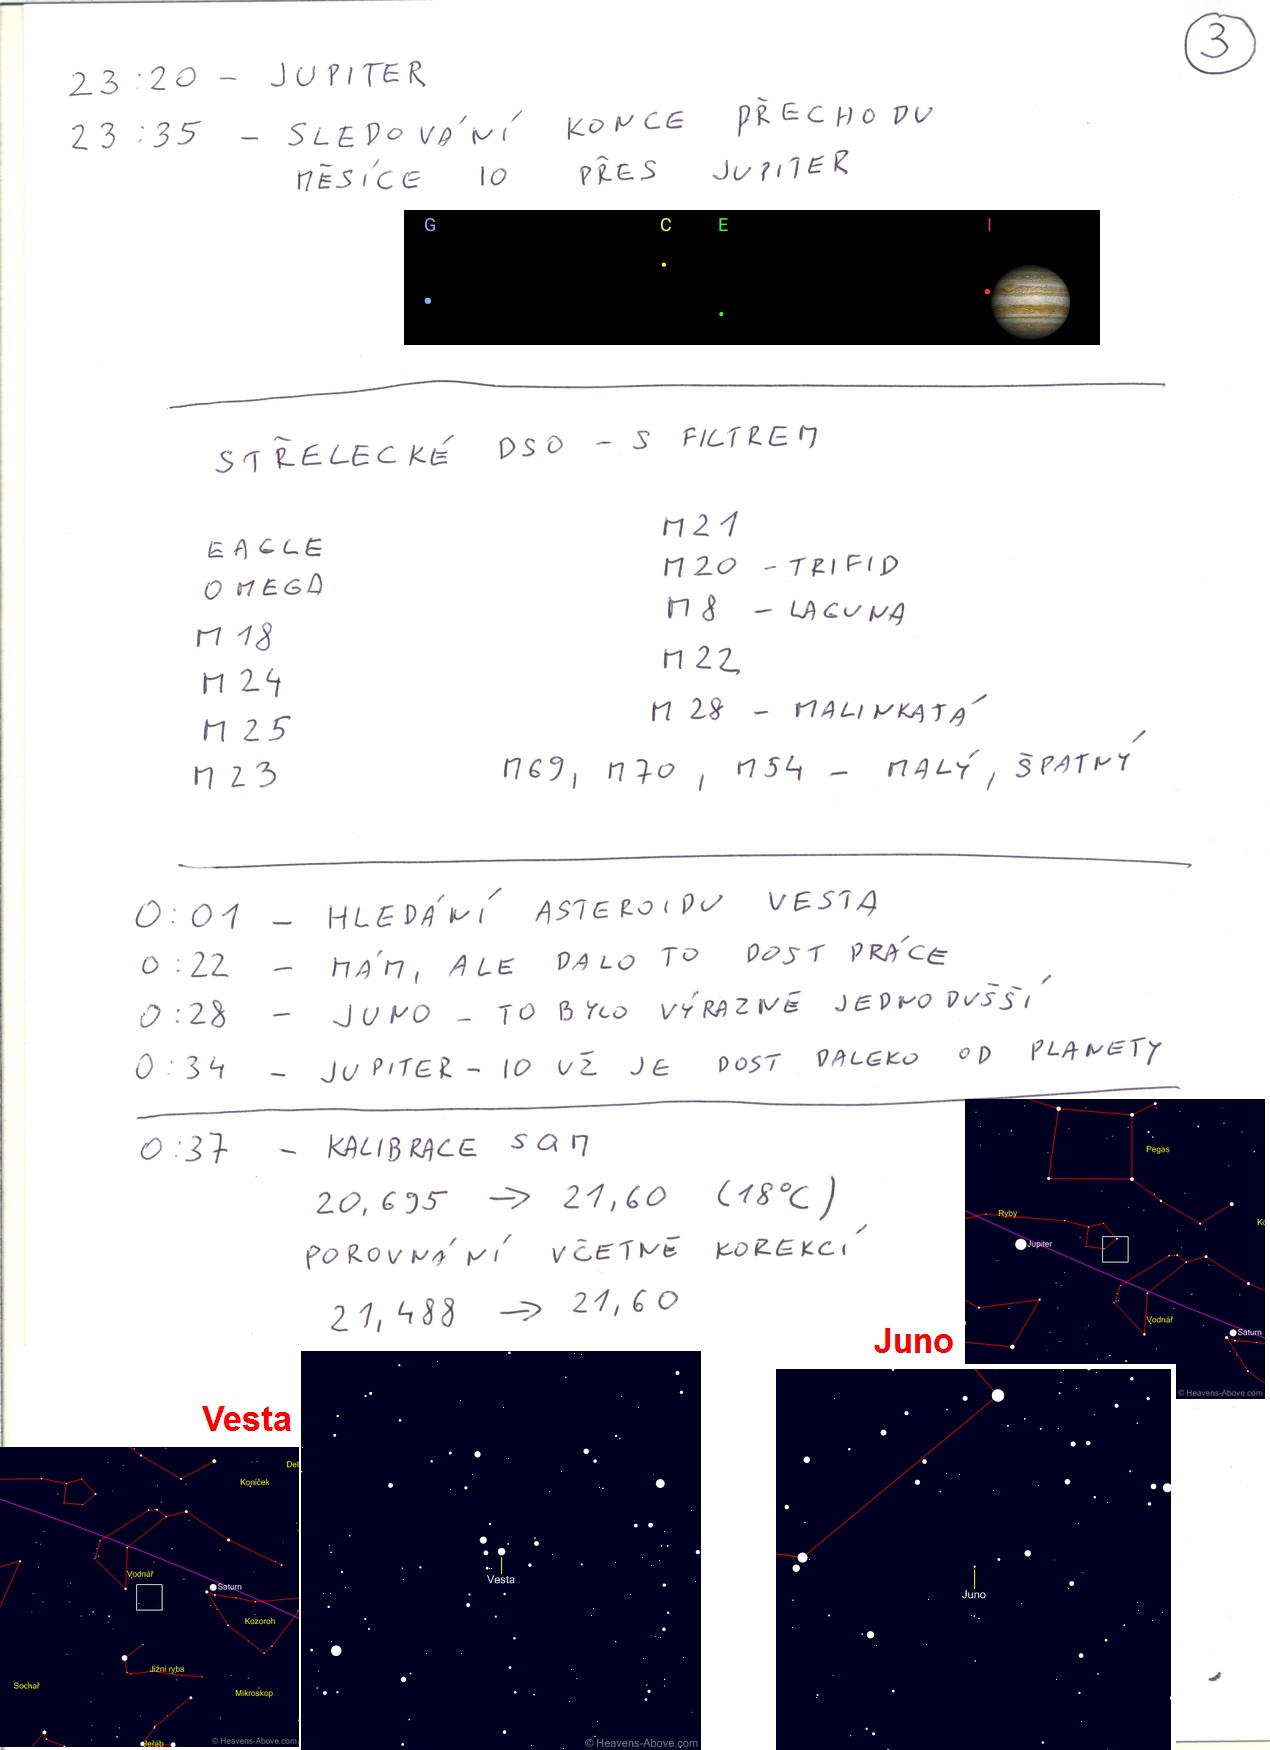 3
23:20 - JUPITER
23:35 - SLEDOVÁNÍ KONCE PŘECHODU
MĚSÍCE IO PŘES JUPITER
G C E I
STŘELECKÉ DSO - S FILTREM
EAGLE
OMEGA
M 18
M 24
M 25
M 23
M 21
M 20 - TRIFID
M 8 - LAGUNA
M 22
M 28 - MALINKATÁ
M69, M70, M54 - MALÝ, ŠPATNÝ
0:01 - HLEDÁNÍ ASTEROIDU VESTA
0:22 - MÁM, ALE DALO TO DOST PRÁCE
0:28 - JUNO - TO BYLO VÝRAZNĚ JEDNODUŠŠÍ
0:34 - JUPITER - IO UŽ JE DOST DALEKO OD PLANETY
0:37 - KALIBRACE SQM
20,695 → 21,60 (18°C)
POROVNÁNÍ VČETNĚ KOREKCÍ
21,488 → 21,60
Pegas
Ryby
Jupiter
Vodnář
Saturn
© Heavens-Above.com
Juno
Juno
Vesta
Vesta
© Heavens-Above.com
Del
Koníček
Vodnář
Saturn
Kozoroh
Jižní ryba
Sochař
Mikroskop
Jeřáb
© Heavens-Above.com